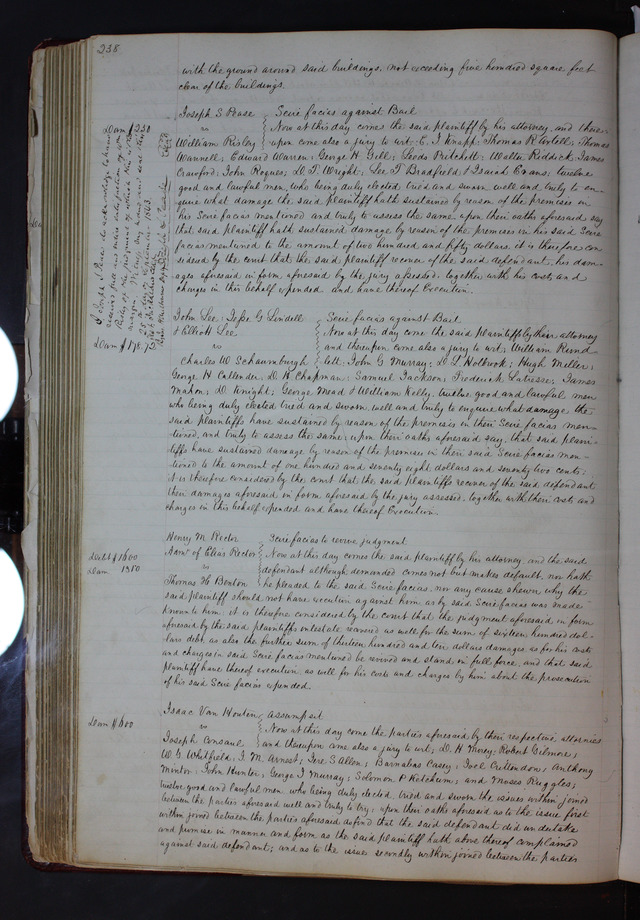 238
with the ground around said buildings, not exceeding five hundred square feet
clear of the buildings.
Joseph S Pease
vs
William Risley
Scire facias against Bail
Now at this day come the said plaintiff by his attorney, and there-
upon come also a jury to wit; E. J. Knapp; Thomas R. Axtell; Thomas
Warnell; Edward Warren; George H. Gill; Leeds Pritchett; Walter Riddick; James
Crawford; John Rogues; D. T. Wright; Lee T Bradfield & Isaiah Evans; twelve
good and lawful men, who being duly elected tried and sworn well and truly to en-
quire what damage the said plaintiff hath sustained by reason of the premises in
his Scire facias mentioned and truly to assess the same upon their oaths aforesaid say
that said plaintiff hath sustained damage by reason of the premises in his said Scire
facias mentioned to the amount of two hundred and fifty dollars. it is therefore con
sidered by the court that the said plaintiff recover of the said defendant, his dam-
ages aforesaid in form aforesaid by the jury assessed, together with his costs and
charges in this behalf expended and have thereof Execution.
John Lee, Jesse G Lindell
& Elliott Lee
vs
Charles W Schaumburgh
Dam $178.7
Scire facias against Bail
Now at this day come the said plaintiffs by their attorney
and thereupon come also a jury to wit; William Rind
lett; John G Murray; D. L. Holbrook; Hugh Miller;
George H. Callender; D. H Chapman; Samuel Jackson; Frederick Latresse; James
Mahon; D. Knight; George Mead & William Kelly, twelve good and lawful men
who being duly elected tried and sworn well and truly to enquire what damage the
said plaintiffs have sustained by reason of the premises in their Scire facias men-
tioned, and truly to assess the same; upon their oaths aforesaid say, that said plain-
tiffs have sustained damage by reason of the premises in their said Scire facias men-
tioned to the amount of one hundred and seventy eight dollars and seventy two cents;
it is therefore considered by the court that the said plaintiffs recover of the said defendant
their damages aforesaid in form aforesaid by the jury assessed, together with their costs and
charges in this behalf expended and have thereof Execution.
Henry M. Rector
Admr of Elias Rector
vs
Thomas H Benton
Debt $1600
Dam 1310
Scire facias to revive judgment
Now at this day comes the said plaintiff by his attorney, and the said
defendant although demanded comes not but makes default, nor hath
he pleaded to the said Scire facias, nor any cause shewn why the
said plaintiff should not have execution against him as by said Scire facias was made
known to him. it is therefore considered by the court that the judgment aforesaid in form
aforesaid by the said plaintiffs intestate recovered as well for the sum of sixteen hundred dol-
lars debt as also the further sum of thirteen hundred and ten dollars damages as for his costs
and charges in said Scire facias mentioned be revived and stand in full force, and that said
plaintiff have thereof execution as well for his costs and charges by him about the prosecution
of his said Scire facias expended.
Isaac Van Houten
vs
Joseph Consaul
Dam $600
Assumpsit
Now at this day come the parties aforesaid by their respective attornies
and thereupon come also a jury to wit; D. H Morey; Robert Gilmore;
W. G. Whitfield; J. M. Arnest; Jere S Allen; Barnabas Casey; Joel Crittendon; Anthony
Minton; John Hunter; George J Murray; Solomon P Ketchum; and Moses Ruggles;
twelve good and lawful men who being duly elected, tried and sworn the issues within joined
between the parties aforesaid well and truly to try; upon their oaths aforesaid as to the issue first
within joined between the parties aforesaid do find that the said defendant did undertake
and promise in manner and form as the said plaintiff hath above thereof complained
against said defendant; and as to the issue secondly within joined between the parties